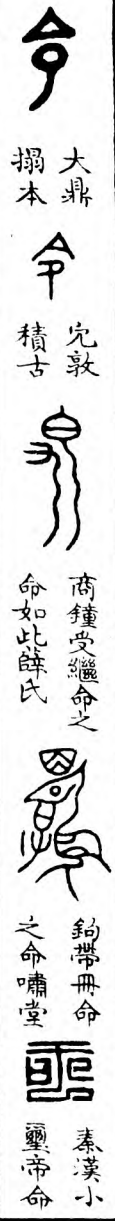 大鼎
搨本
宂敦
積古
商鐘受繼命之
命如此薛氏
鉤帶冊命
之命嘯堂
秦漢小
璽帝命